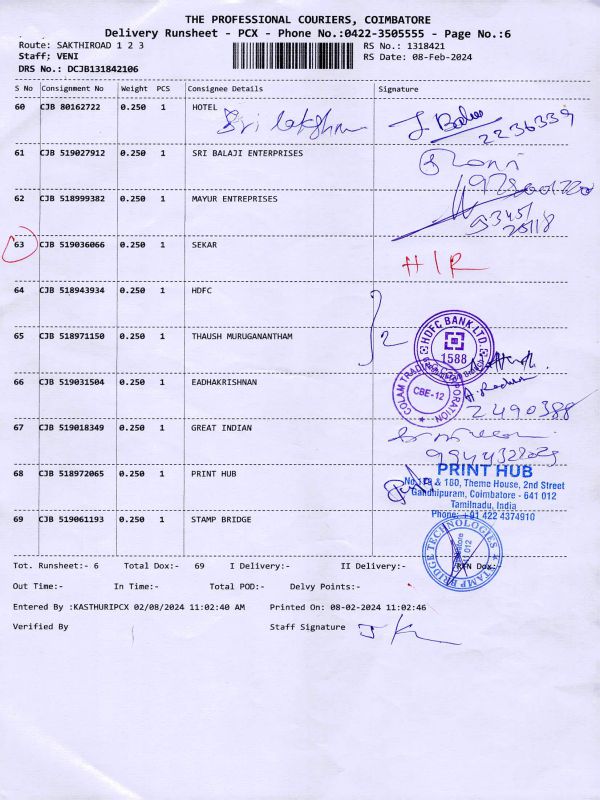 THE PROFESSIONAL COURIERS, COIMBATORE
Delivery Runsheet - PCX - Phone No.:0422-3505555 - Page No.:6
Route: SAKTHIROAD 1 2 3
RS No.: 1318421
Staff; VENI
RS Date: 08-Feb-2024
DRS No.: DCJB131842106
S No Consignment No Weight PCS Consignee Details Signature
60 CJB 80162722 0.250 1 HOTEL
Sri lakshmi
2236339
61 CJB 519027912 0.250 1 SRI BALAJI ENTERPRISES
62 CJB 518999382 0.250 1 MAYUR ENTREPRISES
9345/
25118
63 CJB 519036066 0.250 1 SEKAR
H/R
64 CJB 518943934 0.250 1 HDFC
2
HDFC BANK LTD.
1588
65 CJB 518971150 0.250 1 THAUSH MURUGANANTHAM
66 CJB 519031504 0.250 1 EADHAKRISHNAN
COLAM TRADING CORPORATION
CBE-12
2490388
67 CJB 519018349 0.250 1 GREAT INDIAN
68 CJB 518972065 0.250 1 PRINT HUB
PRINT HUB
No.179 & 180, Theme House, 2nd Street
Gandhipuram, Coimbatore - 641 012
Tamilnadu, India
Phone: +91 422 4374910
69 CJB 519061193 0.250 1 STAMP BRIDGE
STAMP BRIDGE TECHNOLOGIES
Tot. Runsheet:- 6 Total Dox:- 69 I Delivery:- II Delivery:- RTN Dox:-
Out Time:- In Time:- Total POD:- Delvy Points:-
Entered By :KASTHURIPCX 02/08/2024 11:02:40 AM Printed On: 08-02-2024 11:02:46
Verified By Staff Signature